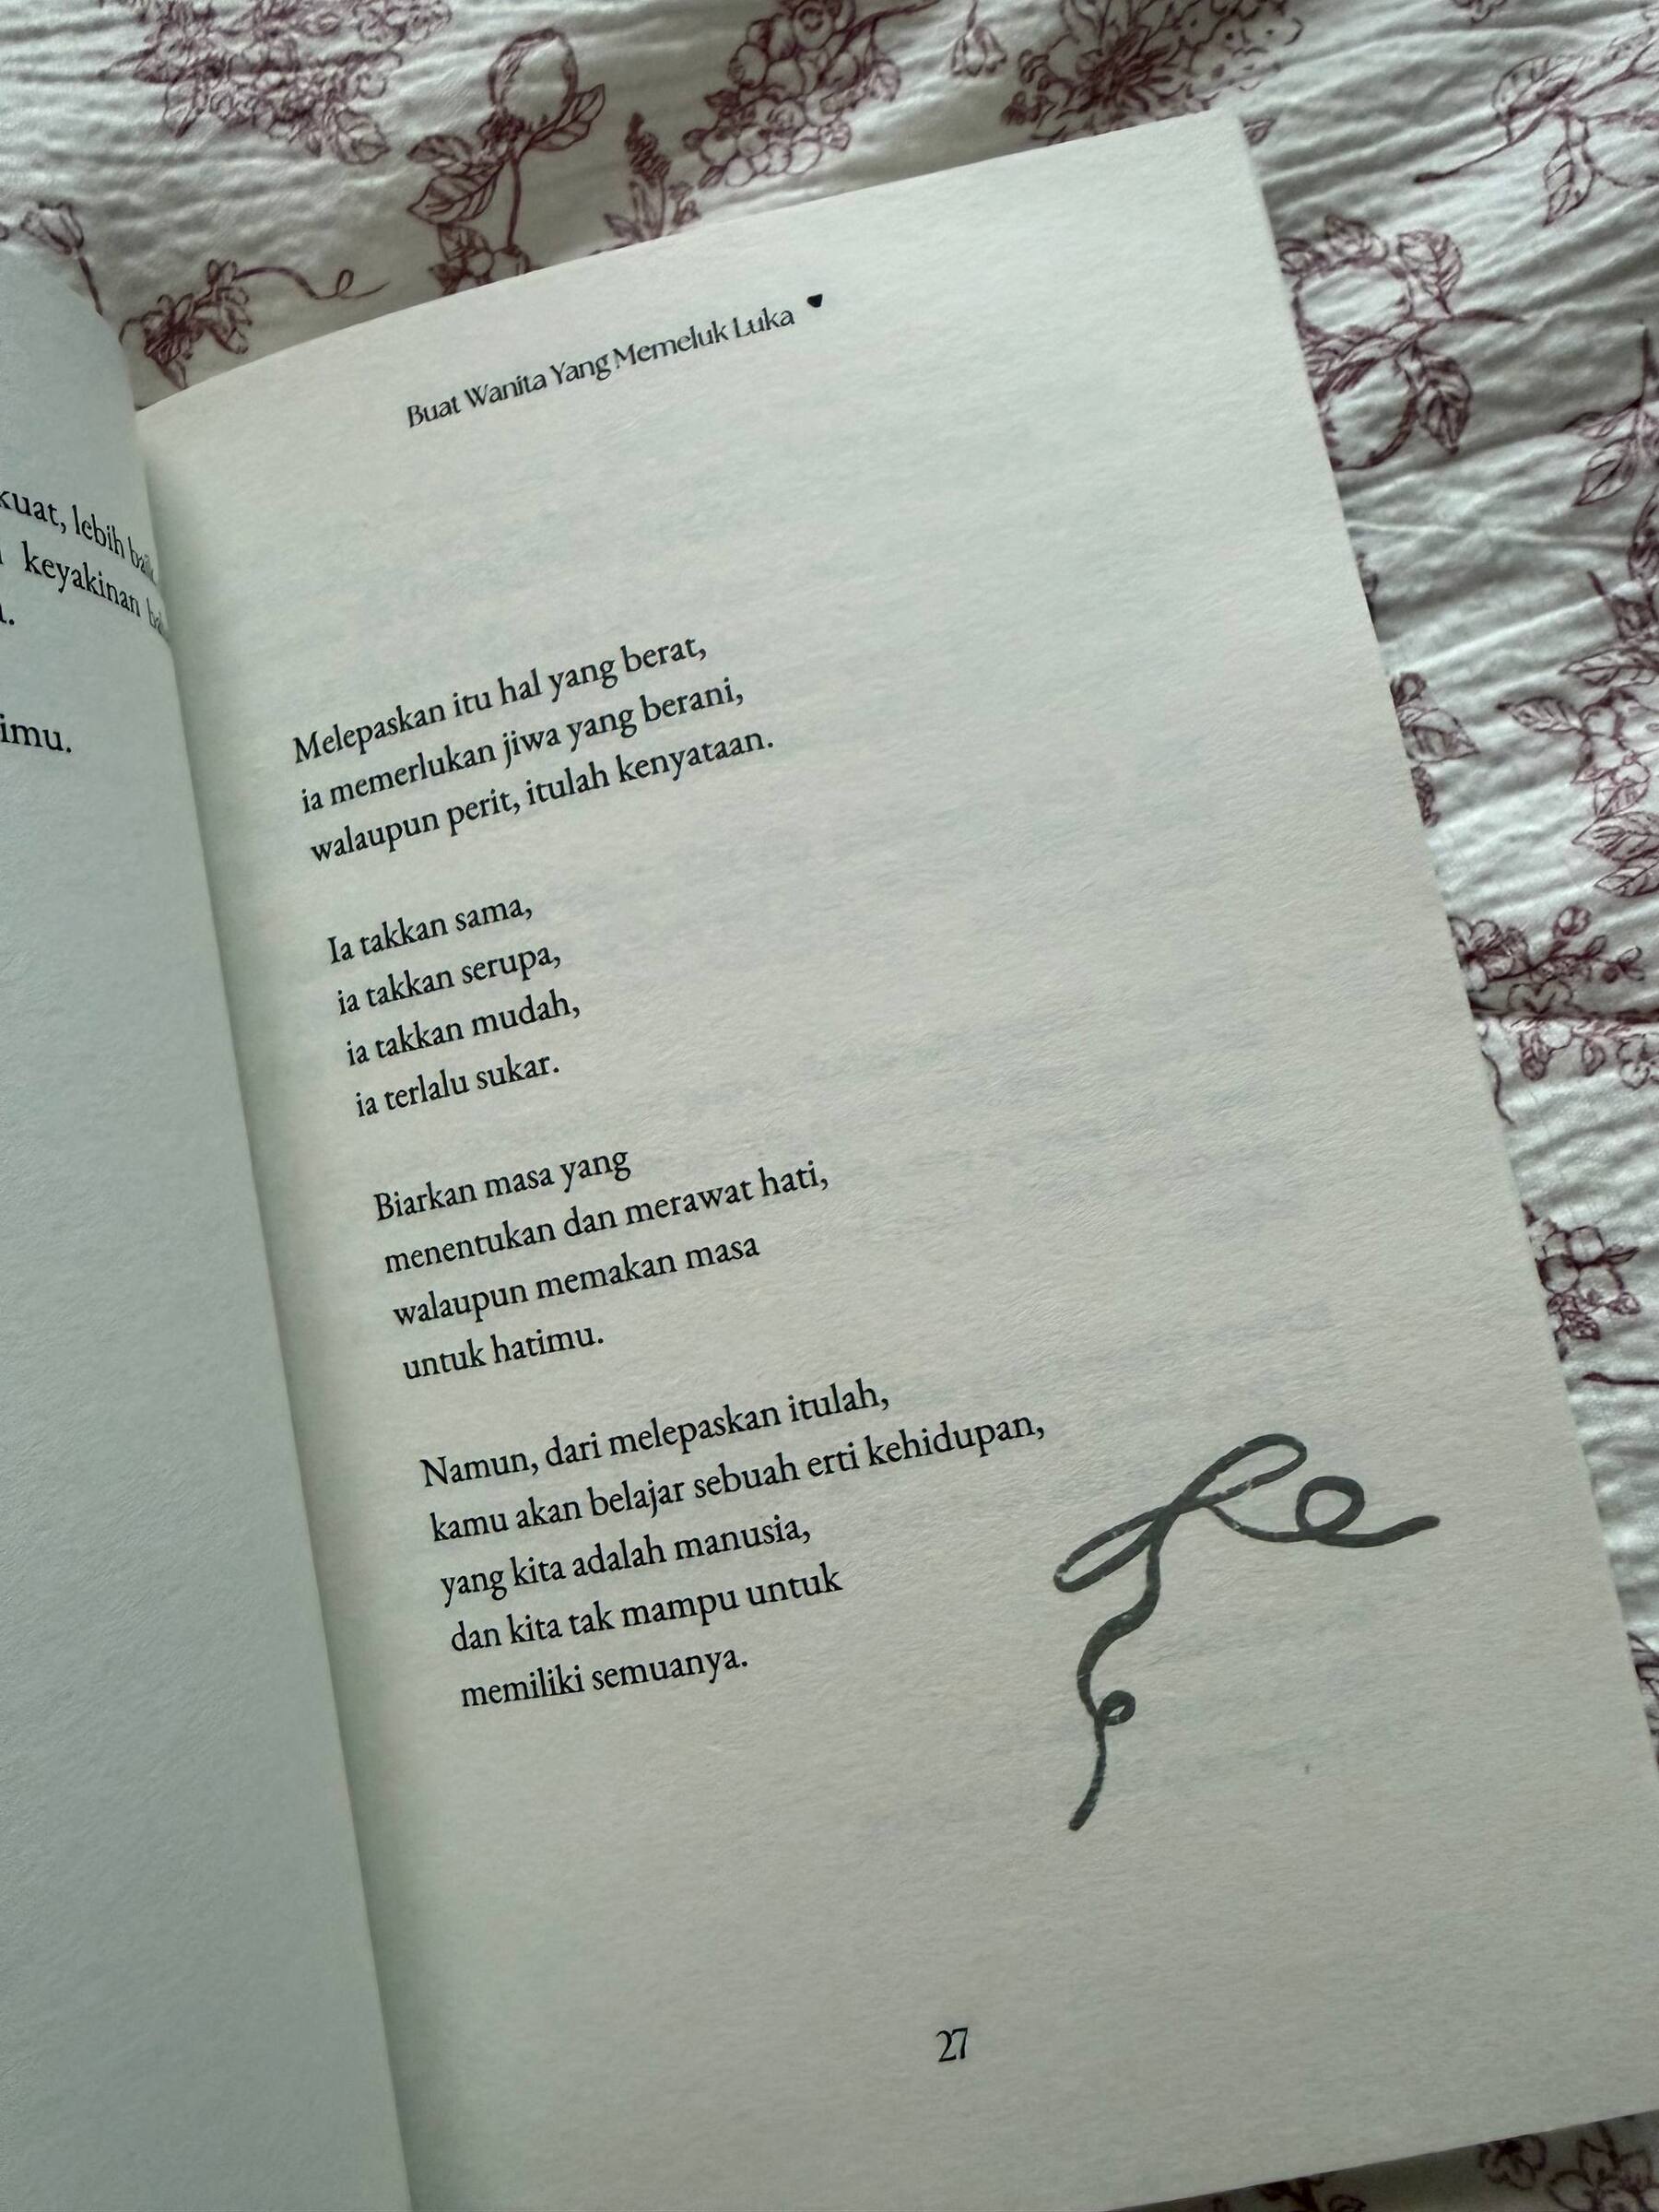 kuat, lebih
keyakinan
imu.
Buat Wanita Yang Memeluk Luka
Melepaskan itu hal yang berat,
ia memerlukan jiwa yang berani,
walaupun perit, itulah kenyataan.
Ia takkan sama,
ia takkan serupa,
ia takkan mudah,
ia terlalu sukar.
Biarkan masa yang
menentukan dan merawat hati,
walaupun memakan masa
untuk hatimu.
Namun, dari melepaskan itulah,
kamu akan belajar sebuah erti kehidupan,
yang kita adalah manusia,
dan kita tak mampu untuk
memiliki semuanya.
27